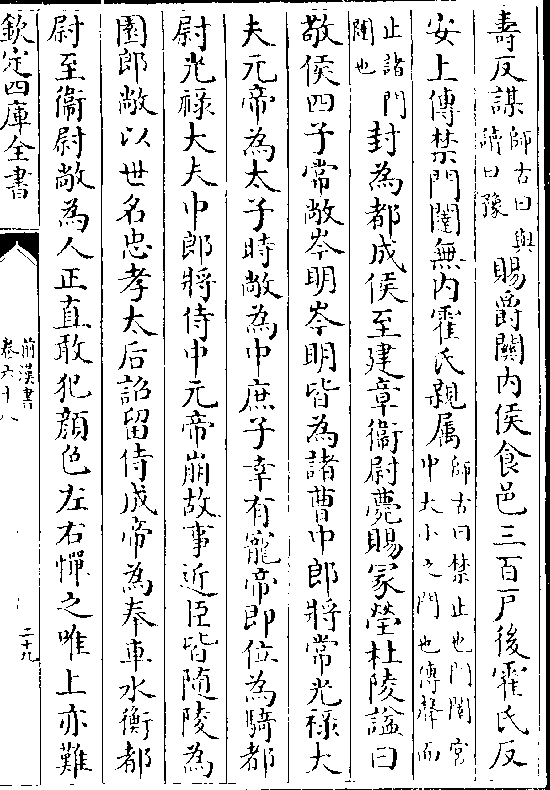 壽反謀師古曰與讀曰豫賜爵關内侯食邑三百户後霍氏反
安上傳禁門闥無内霍氏親属師古曰禁止也門闥宮中大小之門也傳聲而
止諸門闥也封為都成侯至建章衞尉薨賜冢塋杜陵諡曰
敬侯四子常敞岑明岑明皆為諸曹中郎將常光禄大
夫元帝為太子時敞為中庶子幸有寵帝即位為騎都
尉光禄大夫中郎將侍中元帝崩故事近臣皆随陵為
園郎敞以世名忠孝太后詔留侍成帝為奉車水衡都
尉至衞尉敞為人正直敢犯顔色左右憚之唯上亦難
欽定四庫全書
前漢書
卷六十八
二十九